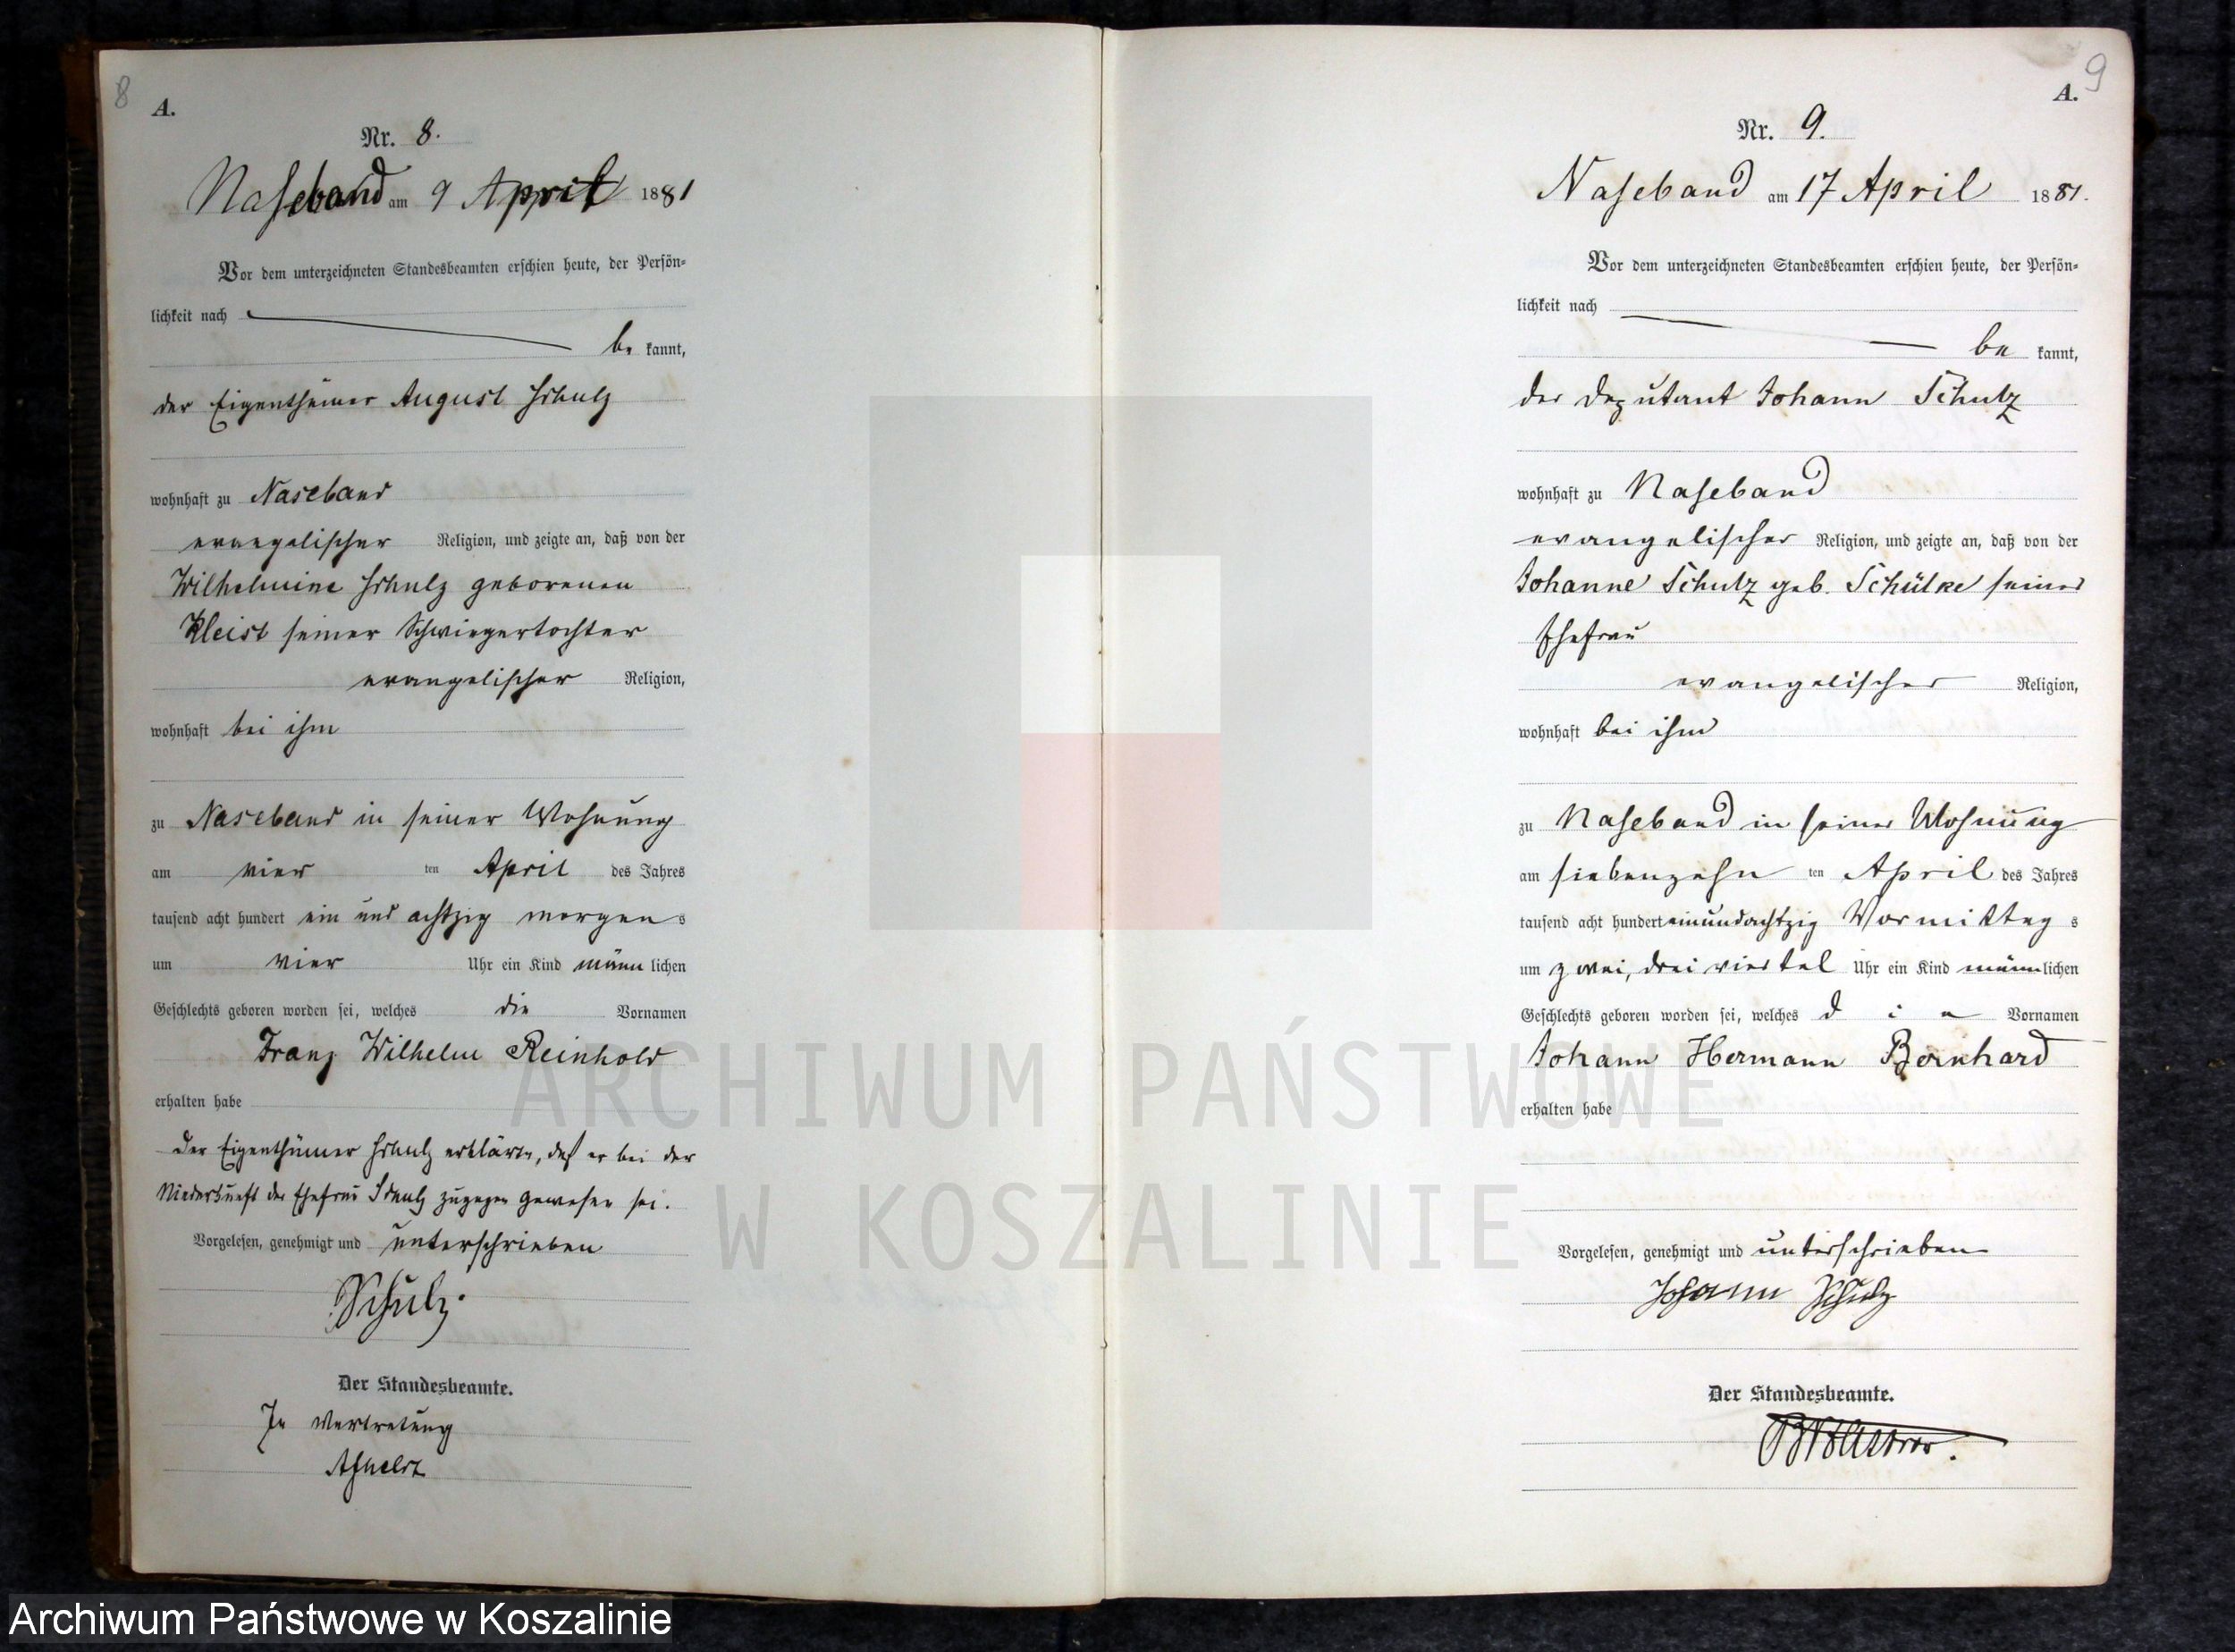 8
A.
Nr. 8.
Naseband am 9 April 1881
Vor dem unterzeichneten Standesbeamten erschien heute, der Persön-
lichkeit nach
be kannt,
der Eigenthümer August Schulz
wohnhaft zu Naseband
evangelischer Religion, und zeigte an, daß von der
Wilhelmine Schulz geborenen
Kleist seiner Schwiegertochter
evangelischer Religion,
wohnhaft bei ihm
zu Naseband in seiner Wohnung
am vier ten April des Jahres
tausend acht hundert ein und achtzig morgen s
um vier Uhr ein Kind männ lichen
Geschlechts geboren worden sei, welches die Vornamen
Franz Wilhelm Reinhold
erhalten habe
Der Eigenthümer Schulz erklärte, daß er bei der
Niederkunft der Ehefrau Schulz zugegen gewesen sei.
Vorgelesen, genehmigt und unterschrieben
Schulz.
Der Standesbeamte.
In Vertretung
9
A.
Nr. 9.
Naseband am 17 April 1881.
Vor dem unterzeichneten Standesbeamten erschien heute, der Persön-
lichkeit nach
be kannt,
der Deputant Johann Schulz
wohnhaft zu Naseband
evangelischer Religion, und zeigte an, daß von der
Johanne Schulz geb. Schülke seiner
Ehefrau
evangelischer Religion,
wohnhaft bei ihm
zu Naseband in seiner Wohnung
am siebenzehn ten April des Jahres
tausend acht hundert einundachtzig Vormittag s
um zwei, drei viertel Uhr ein Kind männ lichen
Geschlechts geboren worden sei, welches die Vornamen
Johann Hermann Bernhard
erhalten habe
Vorgelesen, genehmigt und unterschrieben
Johann Schulz
Der Standesbeamte.
ARCHIWUM PAŃSTWOWE
W KOSZALINIE
Archiwum Państwowe w Koszalinie